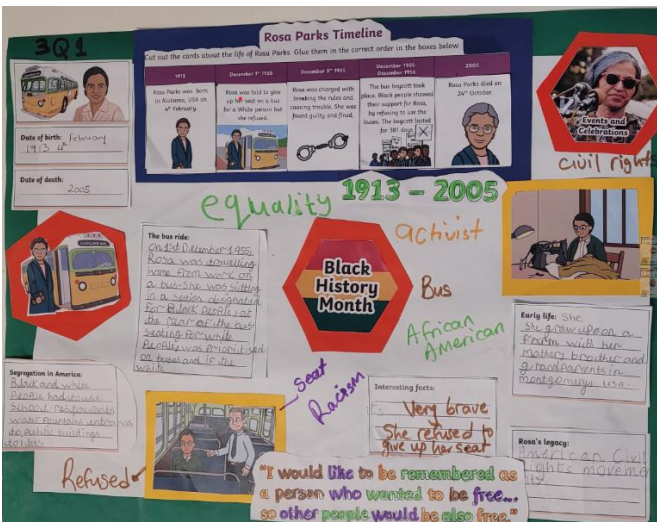 3Q1
Rosa Parks Timeline
Cut out the cards about the life of Rosa Parks. Glue them in the correct order in the boxes below.
1913
Rosa Parks was born
in Alabama, USA on
4th February.
December 1st 1955
Rosa was told to give
up her seat on a bus
for a White person but
she refused.
December 5th 1955
Rosa was charged with
breaking the rules and
causing trouble. She was
found guilty and fined.
The bus boycott took
place. Black people showed
their support for Rosa,
by refusing to use the
buses. The boycott lasted
for 381 days.
2005
Rosa Parks died on
24th October.
Events and
Celebrations
civil right
Date of birth: February
1913 4th
Date of death:
2005
equality
1913 - 2005
activist
Bus
African
American
Black
History
Month
The bus ride:
On 1st December 1955,
Rosa was travelling
home from work on
a bus. She was sitting
in a section designated
for Black People at
the rear of the bus
seating for white
People was prioritised
on buses and if the
white
Early life: She
she grew up on a
farm with her
mother, brother and
grandparents in
montgomery USA.
Segregation in America:
Black and white
People had to use
School restaurants
water fountains entrances
to public buildings
toilets
Refused
Seat
Racism
Interesting facts:
Very brave
She refused to
give up her seat
Rosa's legacy:
American Civil
rights movem
"I would like to be remembered as
a person who wanted to be free...
so other people would be also free."